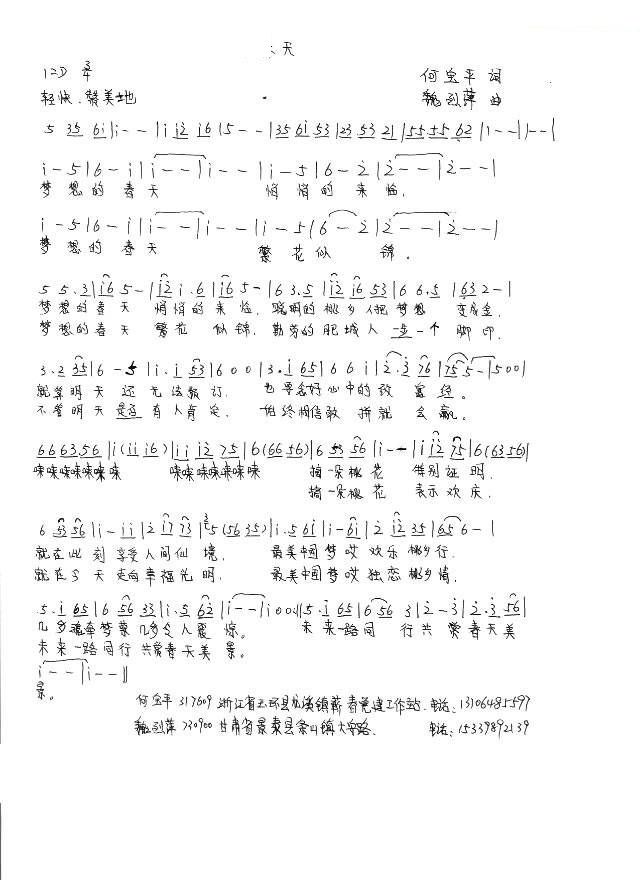 天
1=D 3/4 何宝平 词
轻快、赞美地 魏烈萍 曲
5 35 6i | i - - | i i2 i6 | 5 - - | 35 6i 53 | 23 53 21 | 55 55 62 | 1 - - | 1 - - |
i - 5 | 6 - i | i - - | i - - | i - 5 | 6 - 2 | 2 - - | 2 - - |
梦 想 的 春 天 悄 悄 的 来 临.
i - 5 | 6 - i | i - - | i - - | i - 5 | 6 - 2 | 2 - - | 2 - - |
梦 想 的 春 天 繁 花 似 锦.
5 5. 3 | i6 5 - | i2 i. 6 | i6 5 - | 6 3. 5 | i2 i6 53 | 6 6. 5 | 632 - |
梦想的春 天 悄悄的 来 临, 聪明的桃乡人把梦想 变成金,
梦想的春 天 繁花 似锦, 勤劳的肥城人 一步一个 脚印.
3. 2 35 | 6 - 5 | i. i 53 | 6 0 0 | 3. i 65 | 6 6 i | 2. 3 76 | 75 5 - | 5 0 0 |
就算明 天 还 无法预订, 也要念好心中的
不管明天是否 有人肯定, 始终相信敢 拼就 会 赢.
66 63 56 | i (ii i6) | ii i2 75 | 6 (66 56) | 6 55 56 | i - - | i i2 75 | 6 (63 56) |
咪咪咪咪咪咪咪 咪咪咪咪咪咪咪 摘一朵桃花 特别证明.
摘一朵桃花 表示欢庆.
6 53 56 | i - ii | 2 i7 73 | 5 (56 35) | i. 5 6i | i - 6i | 2 i2 35 | 65 6 - |
就在此 刻 享受人间仙 境, 最美中国梦哎 欢乐桃乡行.
就在今 天 走向幸福光明, 最美中国梦哎 独恋桃乡情.
5. i 65 | 6 56 33 | i. 5 62 | i - - | i 0 0 :|| 5. i 65 | 6 56 3 | 2 - 3 | 2. 3 56 |
几多魂牵梦萦 几多令人震惊. 未来一路同 行共赏春天美
未来一路同行共赏春天美 景.
i - - | i - - ||
景.
何宝平 317609 浙江省玉环县龙溪镇 春党建工作站. 电话: 13106485597
魏烈萍 730900 甘肃省景泰县条山镇大学路. 电话: 15339892139